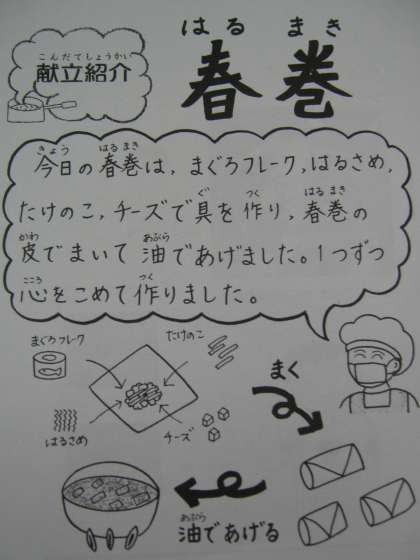 こんだてしょうかい
献立紹介
はる まき
春巻
きょう はる まき
今日の春巻は，まぐろフレーク，はるさめ，
ぐ つく はる まき
たけのこ，チーズで具を作り，春巻の
かわ あぶら
皮でまいて油であげました。1つずつ
こころ つく
心をこめて作りました。
まぐろフレーク
たけのこ
はるさめ
チーズ
まく
あぶら
油であげる